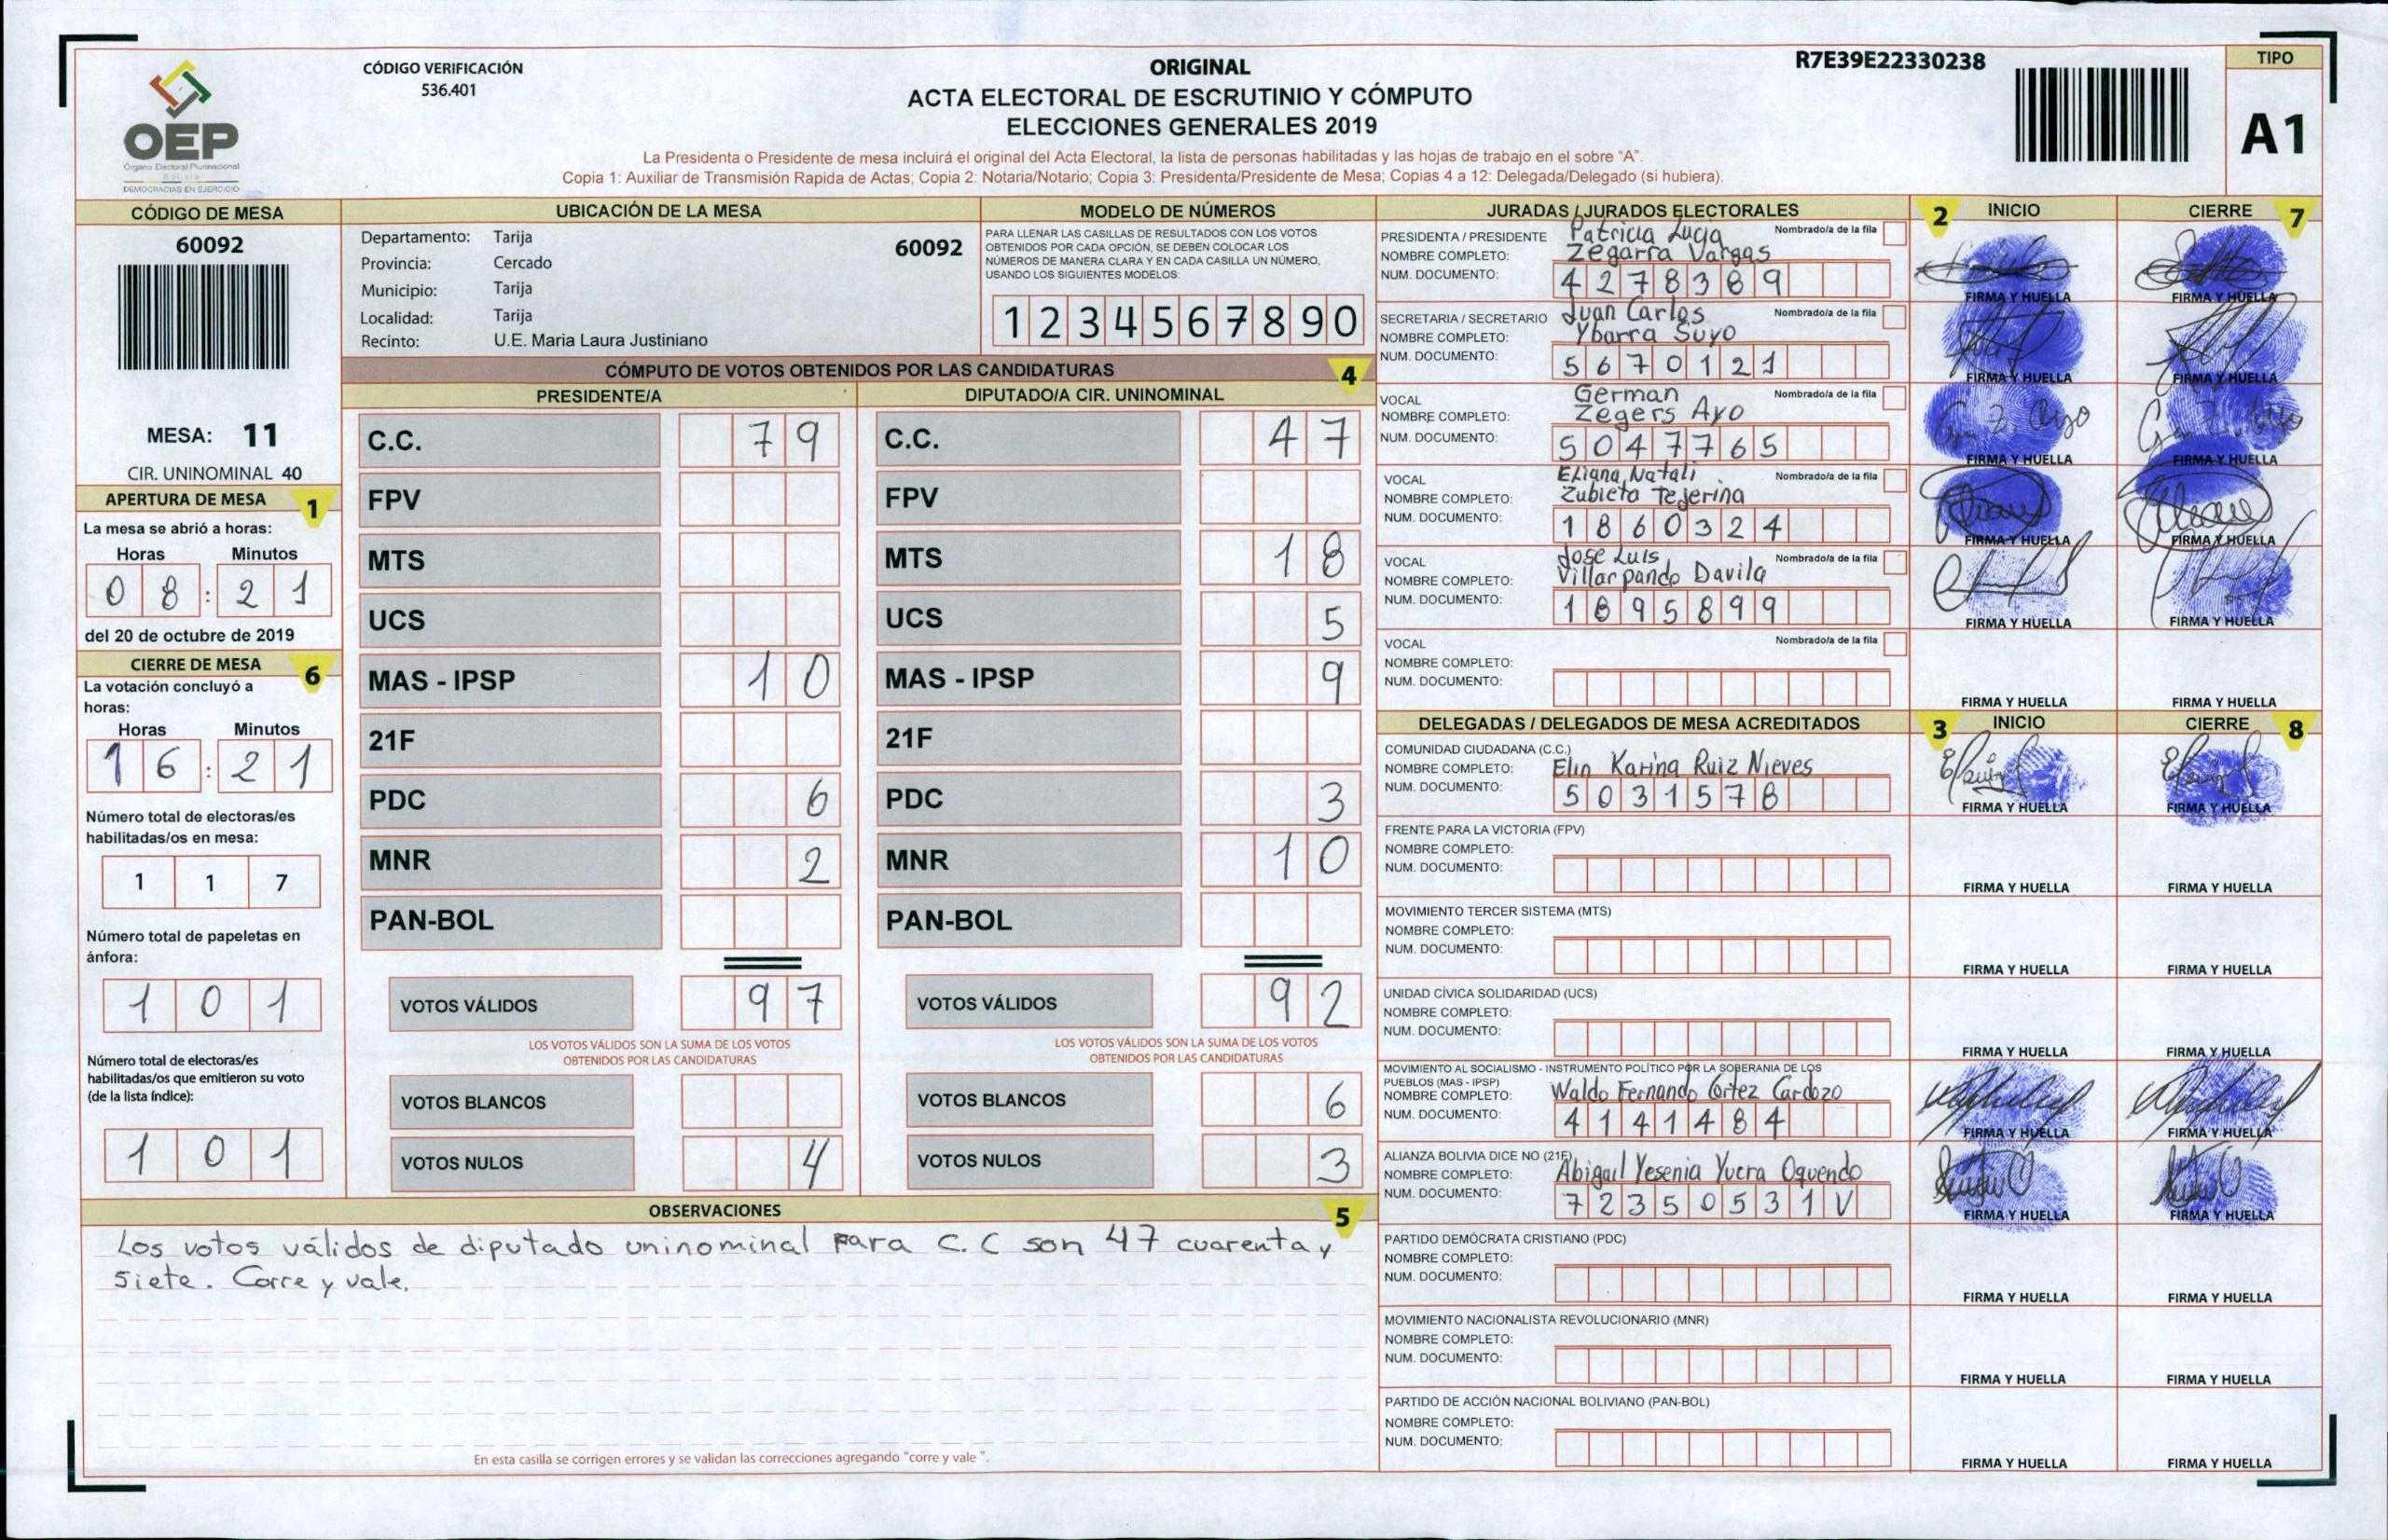 CÓDIGO VERIFICACIÓN
536.401
ORIGINAL
ACTA ELECTORAL DE ESCRUTINIO Y CÓMPUTO
ELECCIONES GENERALES 2019
La Presidenta o Presidente de mesa incluirá el original del Acta Electoral, la lista de personas habilitadas y las hojas de trabajo en el sobre "A".
Copia 1: Auxiliar de Transmisión Rapida de Actas; Copia 2: Notaria/Notario; Copia 3: Presidenta/Presidente de Mesa; Copias 4 a 12: Delegada/Delegado (si hubiera).
R7E39E22330238
TIPO
A1
OEP
Órgano Electoral Plurinacional
BOLIVIA
DEMOCRACIAS EN EJERCICIO
CÓDIGO DE MESA
60092
MESA: 11
CIR. UNINOMINAL 40
APERTURA DE MESA 1
La mesa se abrió a horas:
Horas Minutos
08:21
del 20 de octubre de 2019
CIERRE DE MESA 6
La votación concluyó a
horas:
Horas Minutos
16:21
Número total de electoras/es
habilitadas/os en mesa:
1 1 7
Número total de papeletas en
ánfora:
1 0 1
Número total de electoras/es
habilitadas/os que emitieron su voto
(de la lista índice):
1 0 1
UBICACIÓN DE LA MESA
Departamento: Tarija 60092
Provincia: Cercado
Municipio: Tarija
Localidad: Tarija
Recinto: U.E. Maria Laura Justiniano
MODELO DE NÚMEROS
PARA LLENAR LAS CASILLAS DE RESULTADOS CON LOS VOTOS
OBTENIDOS POR CADA OPCIÓN, SE DEBEN COLOCAR LOS
NÚMEROS DE MANERA CLARA Y EN CADA CASILLA UN NÚMERO,
USANDO LOS SIGUIENTES MODELOS:
1 2 3 4 5 6 7 8 9 0
CÓMPUTO DE VOTOS OBTENIDOS POR LAS CANDIDATURAS 4
PRESIDENTE/A
C.C. 79
FPV
MTS
UCS
MAS - IPSP 10
21F
PDC 6
MNR 2
PAN-BOL
VOTOS VÁLIDOS 97
LOS VOTOS VÁLIDOS SON LA SUMA DE LOS VOTOS
OBTENIDOS POR LAS CANDIDATURAS
VOTOS BLANCOS
VOTOS NULOS 4
DIPUTADO/A CIR. UNINOMINAL
C.C. 47
FPV
MTS 18
UCS 5
MAS - IPSP 9
21F
PDC 3
MNR 10
PAN-BOL
VOTOS VÁLIDOS 92
LOS VOTOS VÁLIDOS SON LA SUMA DE LOS VOTOS
OBTENIDOS POR LAS CANDIDATURAS
VOTOS BLANCOS 6
VOTOS NULOS 3
OBSERVACIONES 5
Los votos válidos de diputado uninominal para C.C son 47 cuarenta y
siete. Corre y vale.
En esta casilla se corrigen errores y se validan las correcciones agregando "corre y vale ".
JURADAS / JURADOS ELECTORALES 2 INICIO CIERRE 7
PRESIDENTA / PRESIDENTE Patricia Lucia Nombrado/a de la fila
NOMBRE COMPLETO: Zegarra Vargas
NUM. DOCUMENTO: 4278389
FIRMA Y HUELLA FIRMA Y HUELLA
SECRETARIA / SECRETARIO Juan Carlos Nombrado/a de la fila
NOMBRE COMPLETO: Ybarra Suyo
NUM. DOCUMENTO: 5670121
FIRMA Y HUELLA FIRMA Y HUELLA
VOCAL German Nombrado/a de la fila
NOMBRE COMPLETO: Zegers Ayo
NUM. DOCUMENTO: 5047765
FIRMA Y HUELLA FIRMA Y HUELLA
VOCAL Eliana Natali Nombrado/a de la fila
NOMBRE COMPLETO: Zubieta Tejerina
NUM. DOCUMENTO: 1860324
FIRMA Y HUELLA FIRMA Y HUELLA
VOCAL Jose Luis Nombrado/a de la fila
NOMBRE COMPLETO: Villarpando Davila
NUM. DOCUMENTO: 1895899
FIRMA Y HUELLA FIRMA Y HUELLA
VOCAL Nombrado/a de la fila
NOMBRE COMPLETO:
NUM. DOCUMENTO:
FIRMA Y HUELLA FIRMA Y HUELLA
DELEGADAS / DELEGADOS DE MESA ACREDITADOS 3 INICIO CIERRE 8
COMUNIDAD CIUDADANA (C.C.)
NOMBRE COMPLETO: Elin Karina Ruiz Nieves
NUM. DOCUMENTO: 5031578
FIRMA Y HUELLA FIRMA Y HUELLA
FRENTE PARA LA VICTORIA (FPV)
NOMBRE COMPLETO:
NUM. DOCUMENTO:
FIRMA Y HUELLA FIRMA Y HUELLA
MOVIMIENTO TERCER SISTEMA (MTS)
NOMBRE COMPLETO:
NUM. DOCUMENTO:
FIRMA Y HUELLA FIRMA Y HUELLA
UNIDAD CÍVICA SOLIDARIDAD (UCS)
NOMBRE COMPLETO:
NUM. DOCUMENTO:
FIRMA Y HUELLA FIRMA Y HUELLA
MOVIMIENTO AL SOCIALISMO - INSTRUMENTO POLÍTICO POR LA SOBERANIA DE LOS
PUEBLOS (MAS - IPSP)
NOMBRE COMPLETO: Waldo Fernando Cortez Cardozo
NUM. DOCUMENTO: 4141484
FIRMA Y HUELLA FIRMA Y HUELLA
ALIANZA BOLIVIA DICE NO (21F)
NOMBRE COMPLETO: Abigail Yesenia Yucra Oquendo
NUM. DOCUMENTO: 72350531V
FIRMA Y HUELLA FIRMA Y HUELLA
PARTIDO DEMÓCRATA CRISTIANO (PDC)
NOMBRE COMPLETO:
NUM. DOCUMENTO:
FIRMA Y HUELLA FIRMA Y HUELLA
MOVIMIENTO NACIONALISTA REVOLUCIONARIO (MNR)
NOMBRE COMPLETO:
NUM. DOCUMENTO:
FIRMA Y HUELLA FIRMA Y HUELLA
PARTIDO DE ACCIÓN NACIONAL BOLIVIANO (PAN-BOL)
NOMBRE COMPLETO:
NUM. DOCUMENTO:
FIRMA Y HUELLA FIRMA Y HUELLA